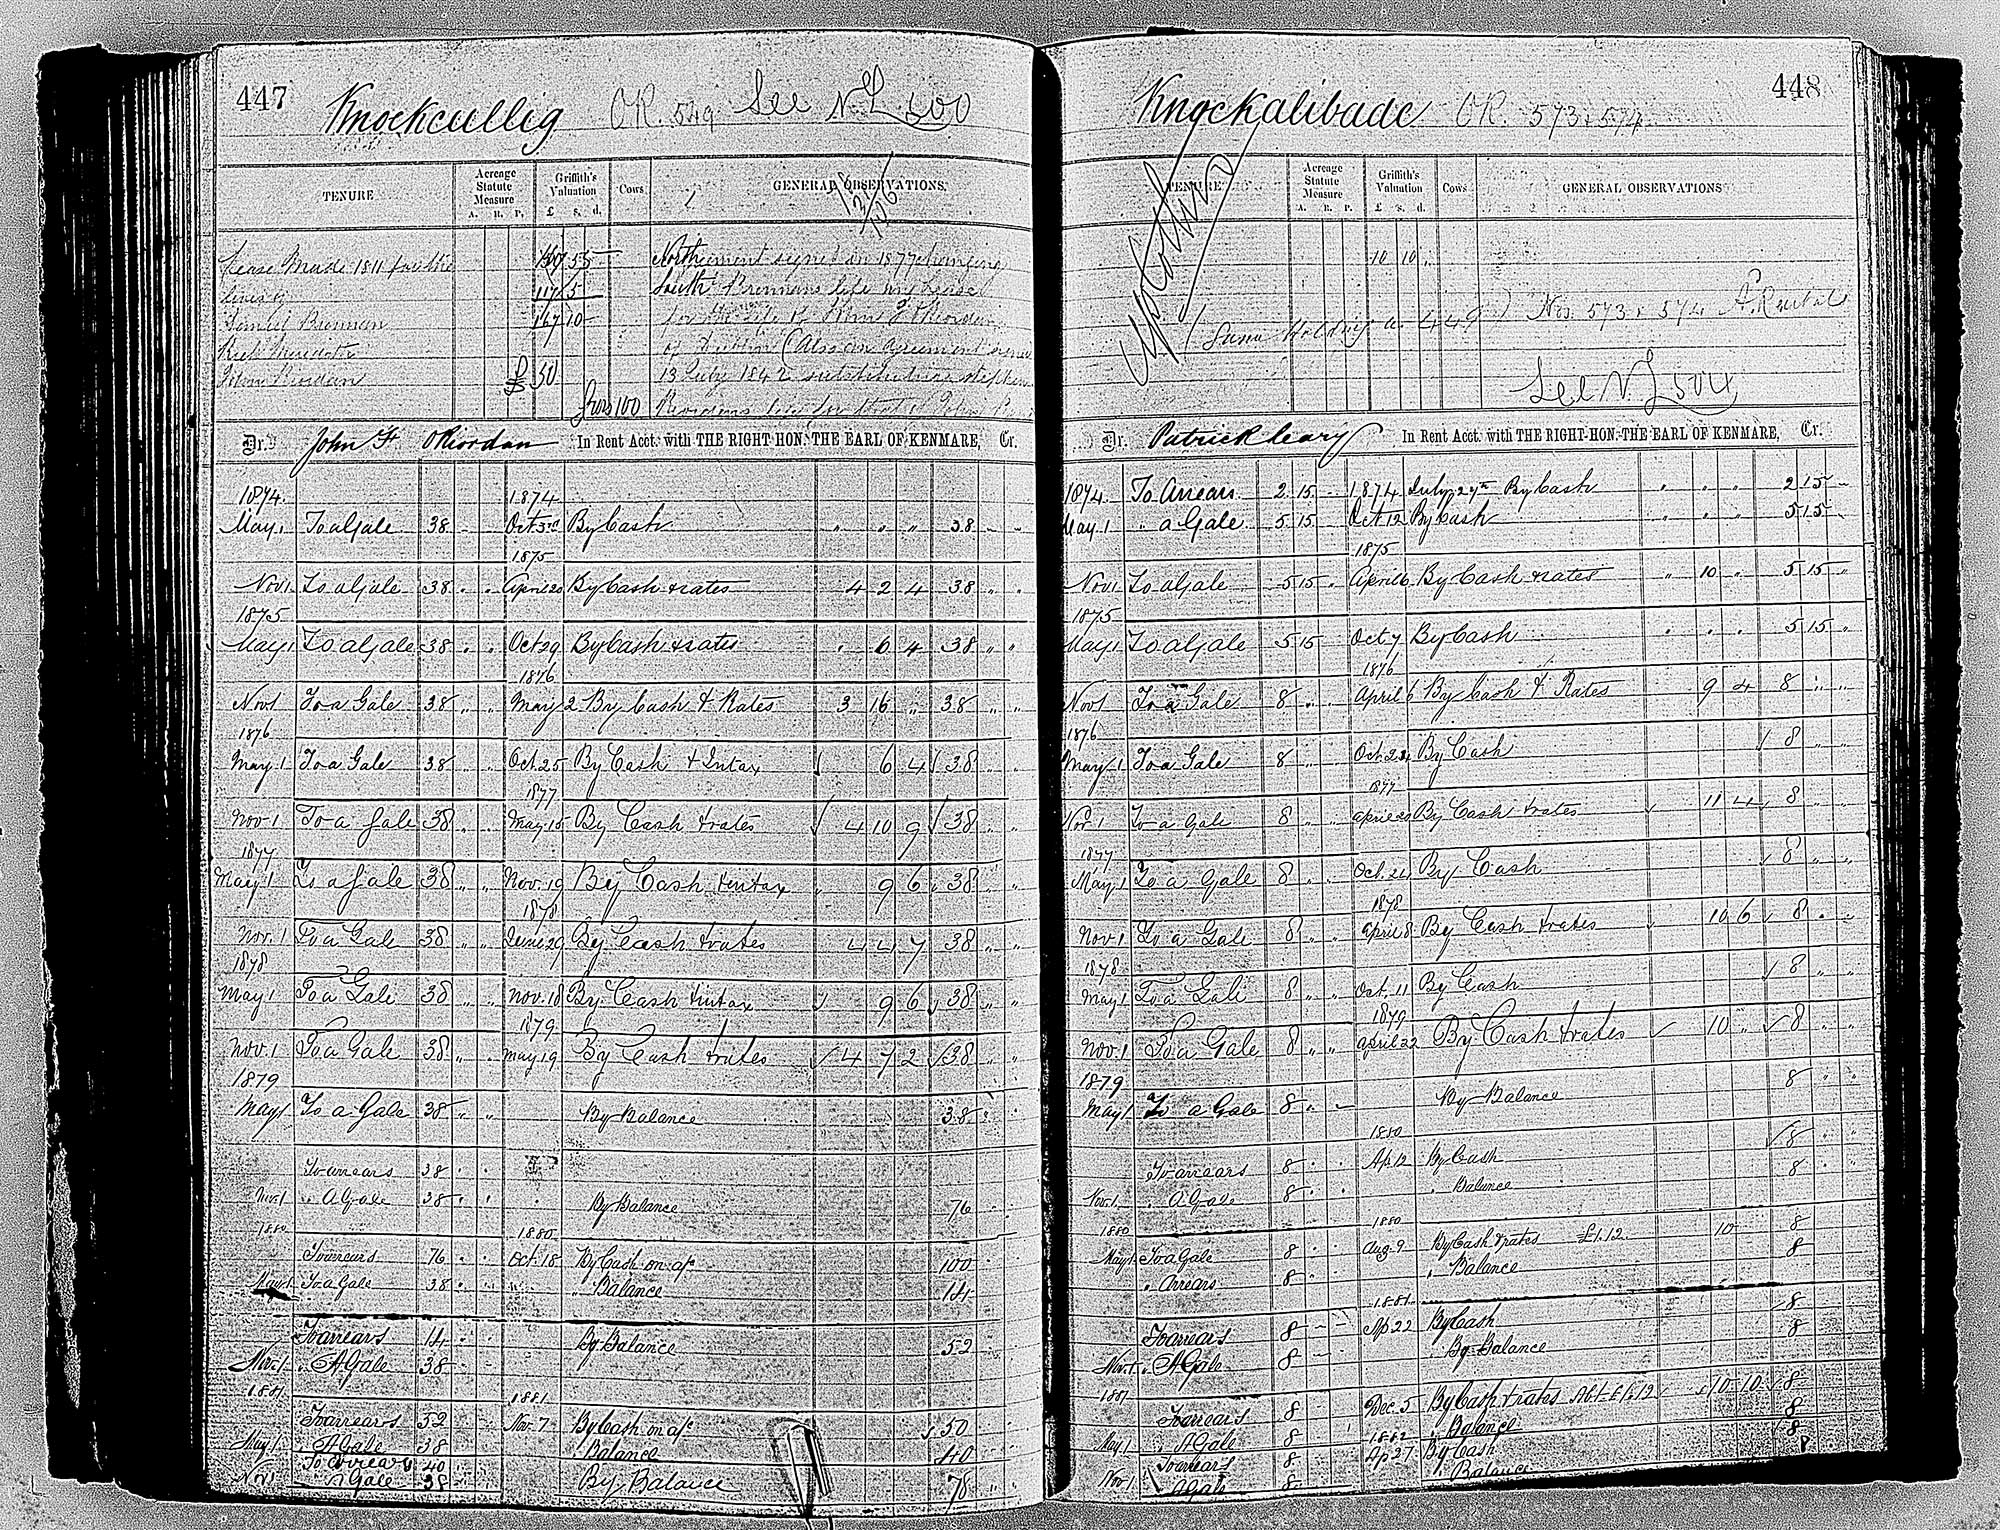 447
Knockcullig OR. 549 See N.L 500
TENURE
Acreage Statute Measure A. R. P.
Griffith's Valuation £ s. d.
Cows
GENERAL OBSERVATIONS.
Lease Made 1811 for the
lives of
Daniel Brennan
Rich Meredith
John Riordan
117 5
167 10
50
100
North
South
signed in 1877 changing
Brennans life in lease
for the life of John F O Riordan
of Dublin (Also an agreement
13 July 1842 substituting Stephen
Riordans life for that of John
Dr. John F O Riordan In Rent Acct. with THE RIGHT HON. THE EARL OF KENMARE, Cr.
1874. 1874
May 1 To a Gale 38 Oct 3rd By Cash " " " 38
1875
Nov 1 To a Gale 38 April 20 By Cash & rates 4 2 4 38
1875
May 1 To a Gale 38 Oct 29 By Cash & rates 6 4 38
1876
Nov 1 To a Gale 38 May 2 By Cash & Rates 3 16 " 38
1876
May 1 To a Gale 38 Oct. 25 By Cash & Intax 6 4 38
1877
Nov 1 To a Gale 38 May 15 By Cash & rates 4 10 9 38
1877
May 1 To a Gale 38 Nov. 19 By Cash & intax 9 6 38
1878
Nov. 1 To a Gale 38 June 29 By Cash & rates 4 4 7 38
1878
May 1 To a Gale 38 Nov. 18 By Cash & intax 9 6 38
1879
Nov. 1 To a Gale 38 May 19 By Cash & rates 4 7 2 38
1879
May 1 To a Gale 38 By Balance 38
To arrears 38
Nov. 1 " A Gale 38 By Balance 76
1880 1880
To arrears 76 Oct. 18 By Cash on a/c 100
May 1 To a Gale 38 " Balance 14
To arrears 14 By Balance 52
Nov. 1 " A Gale 38
1881 1881
To arrears 52 Nov. 7 By Cash on a/c 50
May 1 " A Gale 38 " Balance 40
To arrears 40
Nov 1 " Gale 38 By Balance 78
448
Knockalibade OR. 573 & 574
TENURE
Acreage Statute Measure A. R. P.
Griffith's Valuation £ s. d.
Cows
GENERAL OBSERVATIONS
10 10
(Same Holding as 449) Nos. 573 & 574 Rental
See N.L 504
Dr. Patrick Leary In Rent Acct. with THE RIGHT HON. THE EARL OF KENMARE, Cr.
1874. To Arrears 2 15 1874 July 27th By Cash " " " 2 15
May 1 " a Gale 5 15 Oct 12 By Cash " " " 5 15
1875
Nov 1 To a Gale 5 15 April 6 By Cash & rates " 10 " 5 15
1875
May 1 To a Gale 5 15 Oct 7 By Cash 5 15
1876
Nov 1 To a Gale 8 April 6 By Cash & Rates 9 4 8
1876
May 1 To a Gale 8 Oct. 24 By Cash 8
1877
Nov. 1 To a Gale 8 April 20 By Cash & rates 11 4 8
1877
May 1 To a Gale 8 Oct. 24 By Cash 8
1878
Nov. 1 To a Gale 8 April 8 By Cash & rates 10 6 8
1878
May 1 To a Gale 8 Oct. 11 By Cash 8
1879
Nov. 1 To a Gale 8 April 22 By Cash & rates 10 " 8
1879
May 1 To a Gale 8 By Balance 8
1880
To arrears 8 Ap. 12 By Cash 8
Nov. 1. " A Gale 8 " Balance 8
1880 1880
May 1. To a Gale 8 Aug. 9 By Cash & rates £1.12. 10 8
" Arrears 8 " Balance 8
1881
To arrears 8 Ap 22 By Cash 8
Nov. 1. " A Gale 8 By Balance 8
1881
To arrears 8 Dec. 5 By Cash & rates Abt. £1.12 10 10 8
May 1 " A Gale 8 " Balance 8
1882
To arrears 8 Ap 27 By Cash 8
Nov 1 A Gale 8 Balance 8